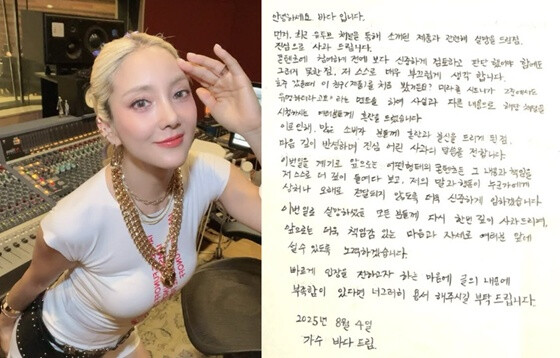 안녕하세요 바다 입니다.
먼저, 최근 유튜브 채널을 통해 소개된 제품과 관련해 실망을 드린점,
진심으로 사과 드립니다.
콘텐츠에 참여하기 전에 보다 신중하게 검토하고 판단 했어야 함에도
그러지 못한 점, 저 스스로 매우 부끄럽게 생각 합니다.
호주
이 제품을 처음 봤거든요? 마침 시드니가 그중에서도
유명하더라고요" 하는 멘트를 하여 사실과 다른 내용으로 해당 제품을
시청하시는 여러분들께 혼란을 드렸습니다
이로 인해, 많은 소비자 분들께 혼란과 불신을 드리게 된점,
마음 깊이 반성하며 진심 어린 사과의 말씀을 전합니다.
이번일을 계기로 앞으로는 어떤형태의 콘텐츠든 그 내용과 책임을
저 스스로 더 깊이 들여다 보고, 저의 말과 행동이 누군가에게
상처나 오해로 전달되지 않도록 더욱 신중하게 임하겠습니다.
이번 일로 실망하셨을 모든 분들께 다시 한번 깊이 사과드리며,
앞으로는 더욱 책임감 있는 마음과 자세로 여러분 앞에
설 수 있도록 노력하겠습니다.
바르게 입장을 전하고자 하는 마음에 글의 내용에
부족함이 있다면 너그러히 용서 해주시길 부탁 드립니다.
2025년 8월 4일
가수 바다 드림.